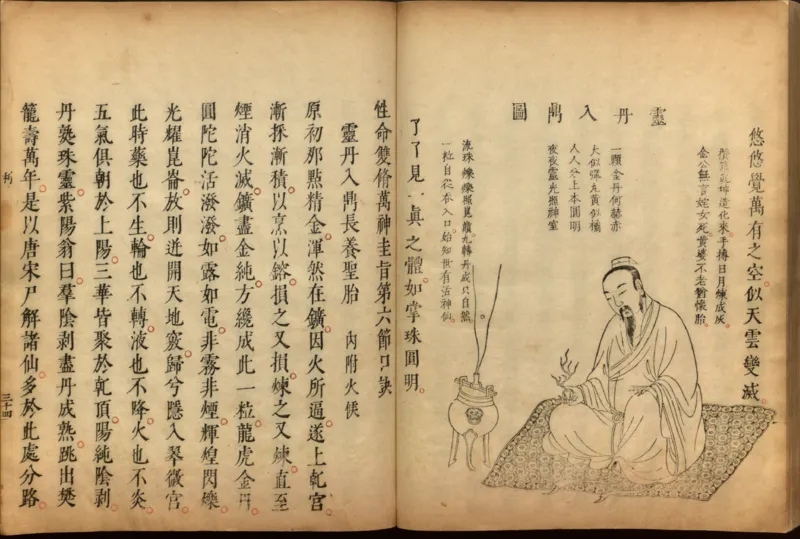 悠悠覺萬有之空似天雲變滅
靈丹入鼎圖
乾坤造化來手摶日月煉成灰
金公無言姹女死黃婆不老猶懷胎
一顆金丹何赫赤
大似彈丸黃似橘
人人分上本圓明
夜夜靈光照神室
流珠爍爍照見九轉丹成只自然
一粒自從吞入口始知世有活神仙
了了見一真之體如掌珠圓明
性命雙脩萬神圭旨第六節口訣
靈丹入鼎長養聖胎 內附火候
原初那點精金渾然在鑛因火所逼遂上乾宮
漸採漸積以烹以鎔損之又損煉之又煉直至
煙消火滅鑛盡金純方纔成此一粒龍虎金丹
圓陀陀活潑潑如露如電非霧非煙輝煌閃爍
光耀崑崙放則迸開天地竅歸兮隱入翠微宮
此時藥也不生輪也不轉液也不降火也不炎
五氣俱朝於上陽三華皆聚於乾頂陽純陰剝
丹熟珠靈紫陽翁曰羣陰剝盡丹成熟跳出樊
籠壽萬年是以唐宋尸解諸仙多於此處分路
利
三十四